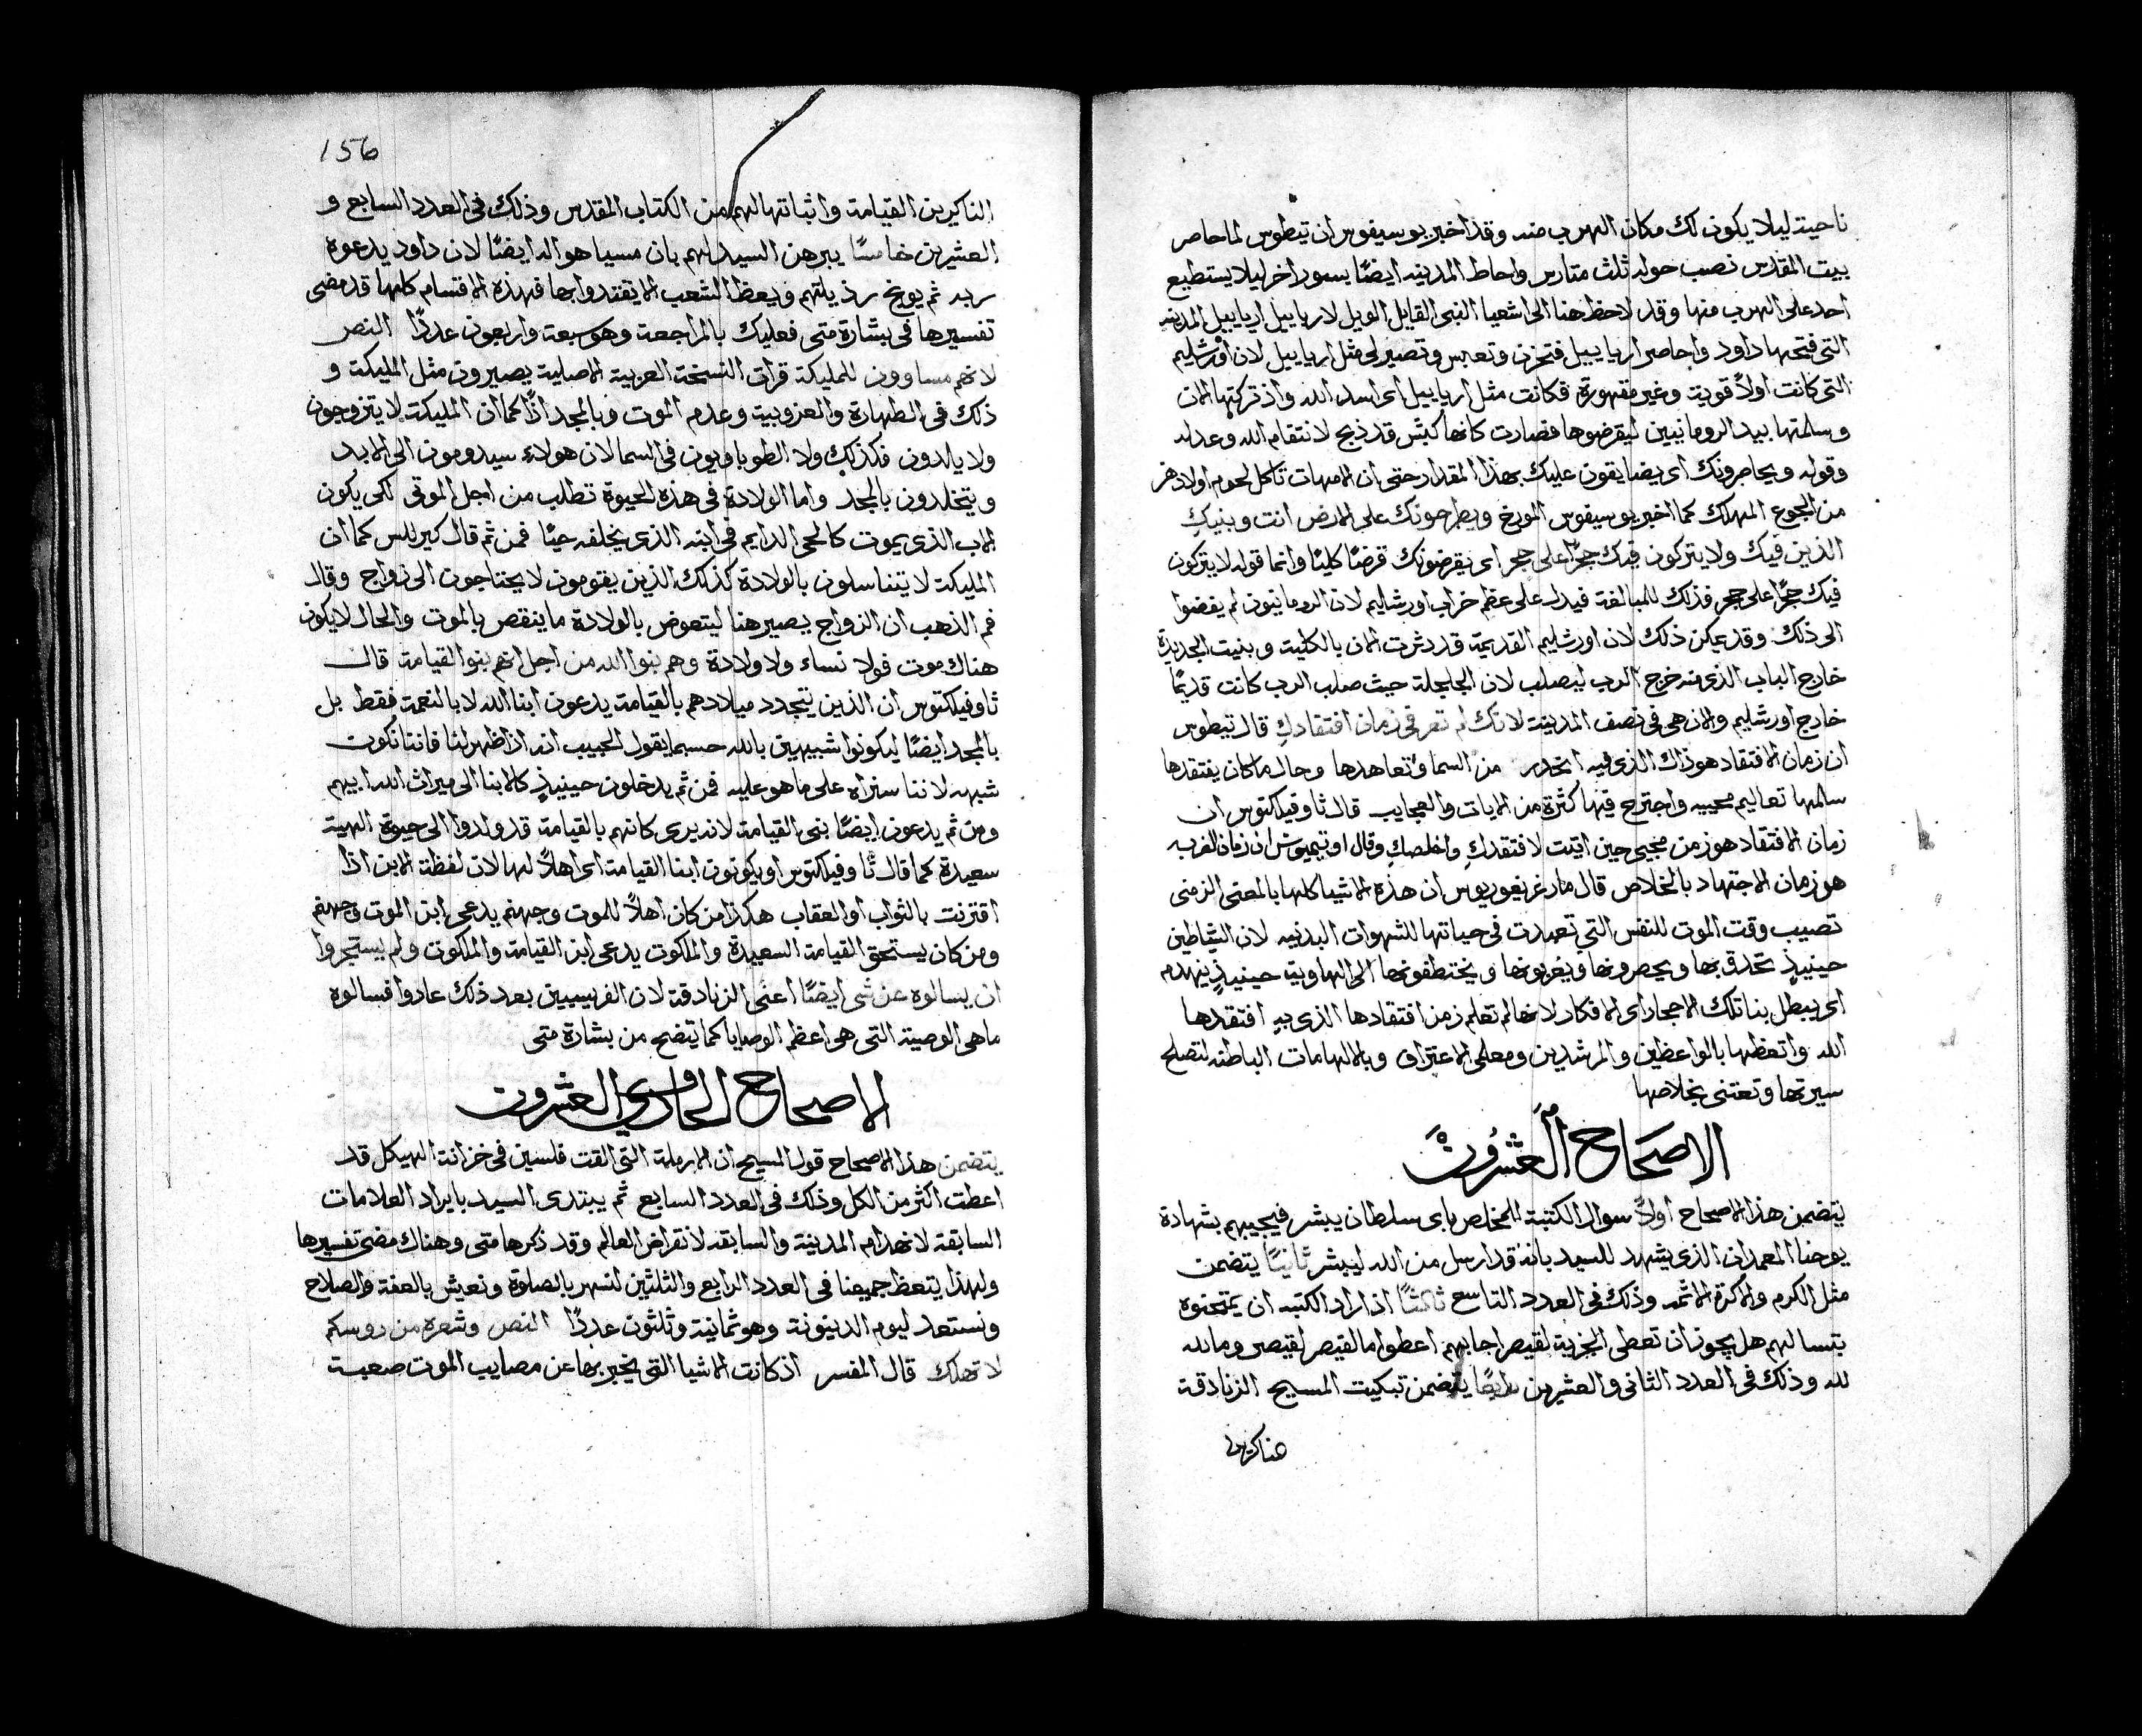 ناحية ليلا يكون لك مكان الهرب منه وقد اخبر يوسيفوس ان تيطوس لما حاصر
بيت المقدس نصب حوله ثلث متاريس واحاط المدينه ايضًا بسور اخر ليلا يستطيع
احد على الهرب منها وقد لاحظ هنا الى اشعيا النبي القايل الويل لارياييل ارياييل المدينه
التي فتحها داود واحاصر ارياييل فتحزن وتعبس وتصير لي مثل ارياييل لان اورشليم
التي كانت اولاً قوية وغير مقهورة فكانت مثل ارياييل اي اسد الله واذ تركتها الان
وسلمتها بيد الرومانيين ليقرضوها فصارت كانها كبش قد ذبح لانتقام الله وعدله
وقوله ويحاصرونك اي يضايقون عليك بهذا المقدار حتى ان الامهات تاكل لحوم اولادهن
من الجوع المهلك كما اخبر يوسيفوس المورخ ويطرحونك على الارض انت وبنيكِ
الذين فيك ولا يتركون فيك حجرًا على حجر اي يقرضونك قرضًا كليًا وانما قوله لا يتركون
فيك حجرًا على حجر فذلك للمبالغة فيدل على عظم خراب اورشليم لان الرومانيون لم يفضوا
الى ذلك وقد يمكن ذلك لان اورشليم القديمة قد دثرت الان بالكلية وبنيت الجديدة
خارج الباب الذي منه خرج الرب ليصلب لان الجلجلة حيث صلب الرب كانت قديمًا
خارج اورشليم والان هي في نصف المدينة لانك لم تعرفي زمان افتقادكِ قال تيطوس
ان زمان الافتقاد هو ذاك الذي فيه انحدر من السما وتعاهدها وحال ما كان يفتقدها
سلمها تعاليم محييه واجترح فيها كثرة من الايات والعجايب قال ثاوفيلكتوس ان
زمان الافتقاد هو زمن مجيي حين اتيت لافتقدكِ واخلصكِ وقال اوتيميوس ان زمان القرب
هو زمان الاجتهاد بالخلاص قال مار غريغوريوس ان هذه الاشيا كلها بالمعنى الرمزي
تصيب وقت الموت للنفس التي تعبدت في حياتها للشهوات البدنيه لان الشياطين
حينيذٍ تحدق بها ويحصرونها ويغربونها ويختطفونها الى الهاوية حينيذٍ ينهدم
اي يبطل بنا تلك الاحجار اي الافكار لانها لم تعلم زمن افتقادها الذي به افتقدها
الله واتعظها بالواعظين والمرشدين ومعلمي الاعتراف وبالالهامات الباطنه لتصلح
سيرتها وتعتني بخلاصها
الاصحاح العشرون
يتضمن هذا الاصحاح اولاً سوال الكتبة للمخلص باي سلطان يبشر فيجيبهم بشهادة
يوحنا المعمداني الذي شهد للسيد بانه قد ارسل من الله ليبشر ثانيًا يتضمن
مثل الكرم والاكرة الاثمه وذلك في العدد التاسع ثالثًا اذ اراد الكتبه ان يمتحنوه
بتسالهم هل يجوز ان تعطى الجزية لقيصر اجابهم اعطوا ما لقيصر لقيصر وما لله
لله وذلك في العدد الثاني والعشرين رابعًا يتضمن تبكيت المسيح الزنادقة
156
الناكرين القيامة واثباتها لهم من الكتاب المقدس وذلك في العدد السابع و
العشرين خامسًا يبرهن السيد لهم بان مسيا هو اله ايضًا لان داود يدعوه
ربه ثم يوبخ رذيلتهم ويعظ الشعب الا يقتدوا بها فهذه الاقسام كلها قد مضى
تفسيرها في بشارة متى فعليك بالمراجعة وهو سبعة واربعون عددًا النص
لانهم مساوون للمليكة قرات النسخة العربية الاصلية يصيرون مثل المليكة و
ذلك في الطهارة والعزوبية وعدم الموت وبالمجد اذًا كما ان المليكة لا يتزوجون
ولا يالدون فكذلك ولا الطوباويون في السما لان هولاء سيدومون الى الابد
ويتخلدون بالمجد واما الولادة في هذه الحيوة تطلب من اجل الموتى لكي يكون
الاب الذي يموت كالحي الدايم في ابنه الذي يخلفه حيًا فمن ثم قال كيرللس كما ان
المليكة لا يتناسلون بالولادة كذلك الذين يقومون لا يحتاجون الى زواج وقال
فم الذهب ان الزواج يصير هنا ليتعوض بالولادة ما ينقص بالموت والحال لا يكون
هناك موت فولا نساء ولا ولادة وهم بنوا الله من اجل انهم بنوا القيامة قال
ثاوفيلكتوس ان الذين يتجدد ميلادهم بالقيامة يدعون ابنا الله لا بالنعمة فقط بل
بالمجد ايضًا ليكونوا شبيهين بالله حسبما يقول الحبيب انه اذا ظهر لنا فاننا نكون
شبهه لاننا سنراه على ما هو عليه فمن ثم يدخلون حينيذٍ كالابنا الى ميراث الله ابيهم
ومن ثم يدعون ايضًا بني القيامة لانه يرى كانهم بالقيامة قد ولدوا الى حيوة الهية
سعيدة كما قال ثاوفيلكتوس او يكونون ابنا القيامة اي اهلاً لها لان لفظة الابن اذا
اقترنت بالثواب او العقاب هكذا من كان اهلاً للموت وجهنم يدعى ابن الموت وجهنم
ومن كان يستحق القيامة السعيدة والملكوت يدعى ابن القيامة والملكوت ولم يستجروا
ان يسالوه عن شي ايضًا اعني الزنادقة لان الفريسيين بعد ذلك عادوا فسالوه
ما هي الوصية التي هي اعظم الوصايا كما يتضح من بشارة متى
الاصحاح الحادي والعشرون
يتضمن هذا الاصحاح قول المسيح ان الارملة التي القت فلسين في خزانة الهيكل قد
اعطت اكثر من الكل وذلك في العدد السابع ثم يبتدي السيد بايراد العلامات
السابقة لانهدام المدينة والسابقه لانقراض العالم وقد ذكرها متى وهناك مضى تفسيرها
ولهذا يتعظ جميعنا في العدد الرابع والثلثين لنسهر بالصلوة ونعيش بالعفة والصلاح
ونستعد ليوم الدينونة وهو ثمانية وثلثون عددًا النص وشعرة من روسكم
لا تهلك قال المفسر اذ كانت الاشيا التي يخبر بها عن مصايب الموت صعبة